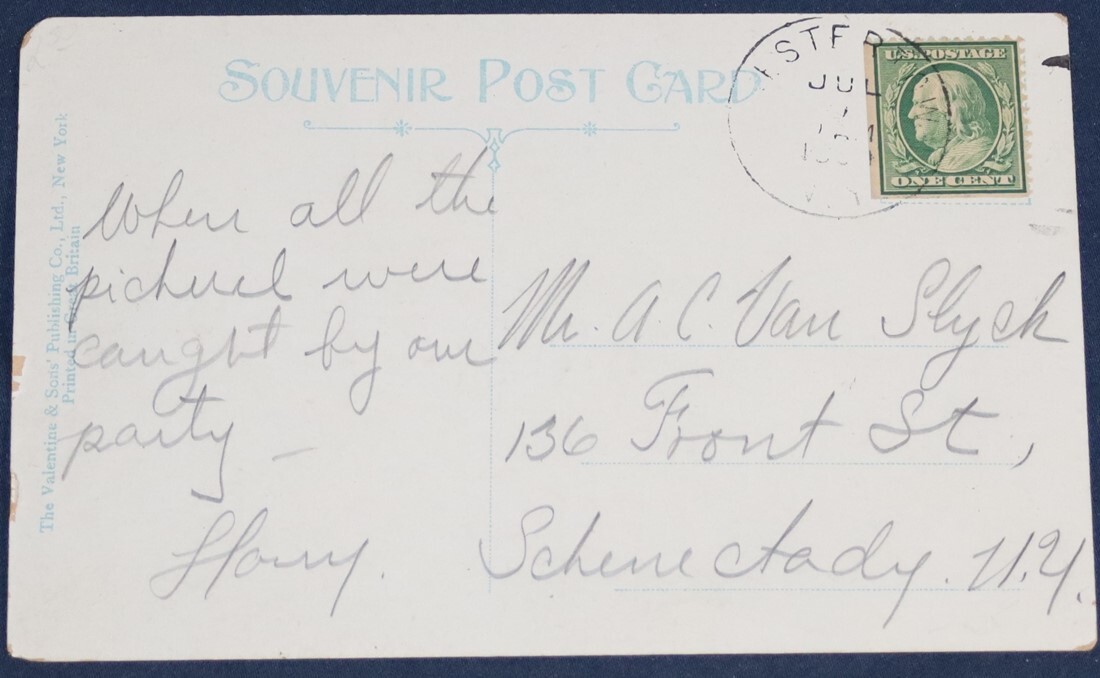 SOUVENIR POST CARD
JUL
U.S. POSTAGE
ONE CENT
When all the
pichurel were
caught by our
party –
Harry.
Mr. A. C. Van Slyck
136 Front St,
Schenectady. N.Y.
The Valentine & Sons' Publishing Co., Ltd., New York
Printed in Great Britain